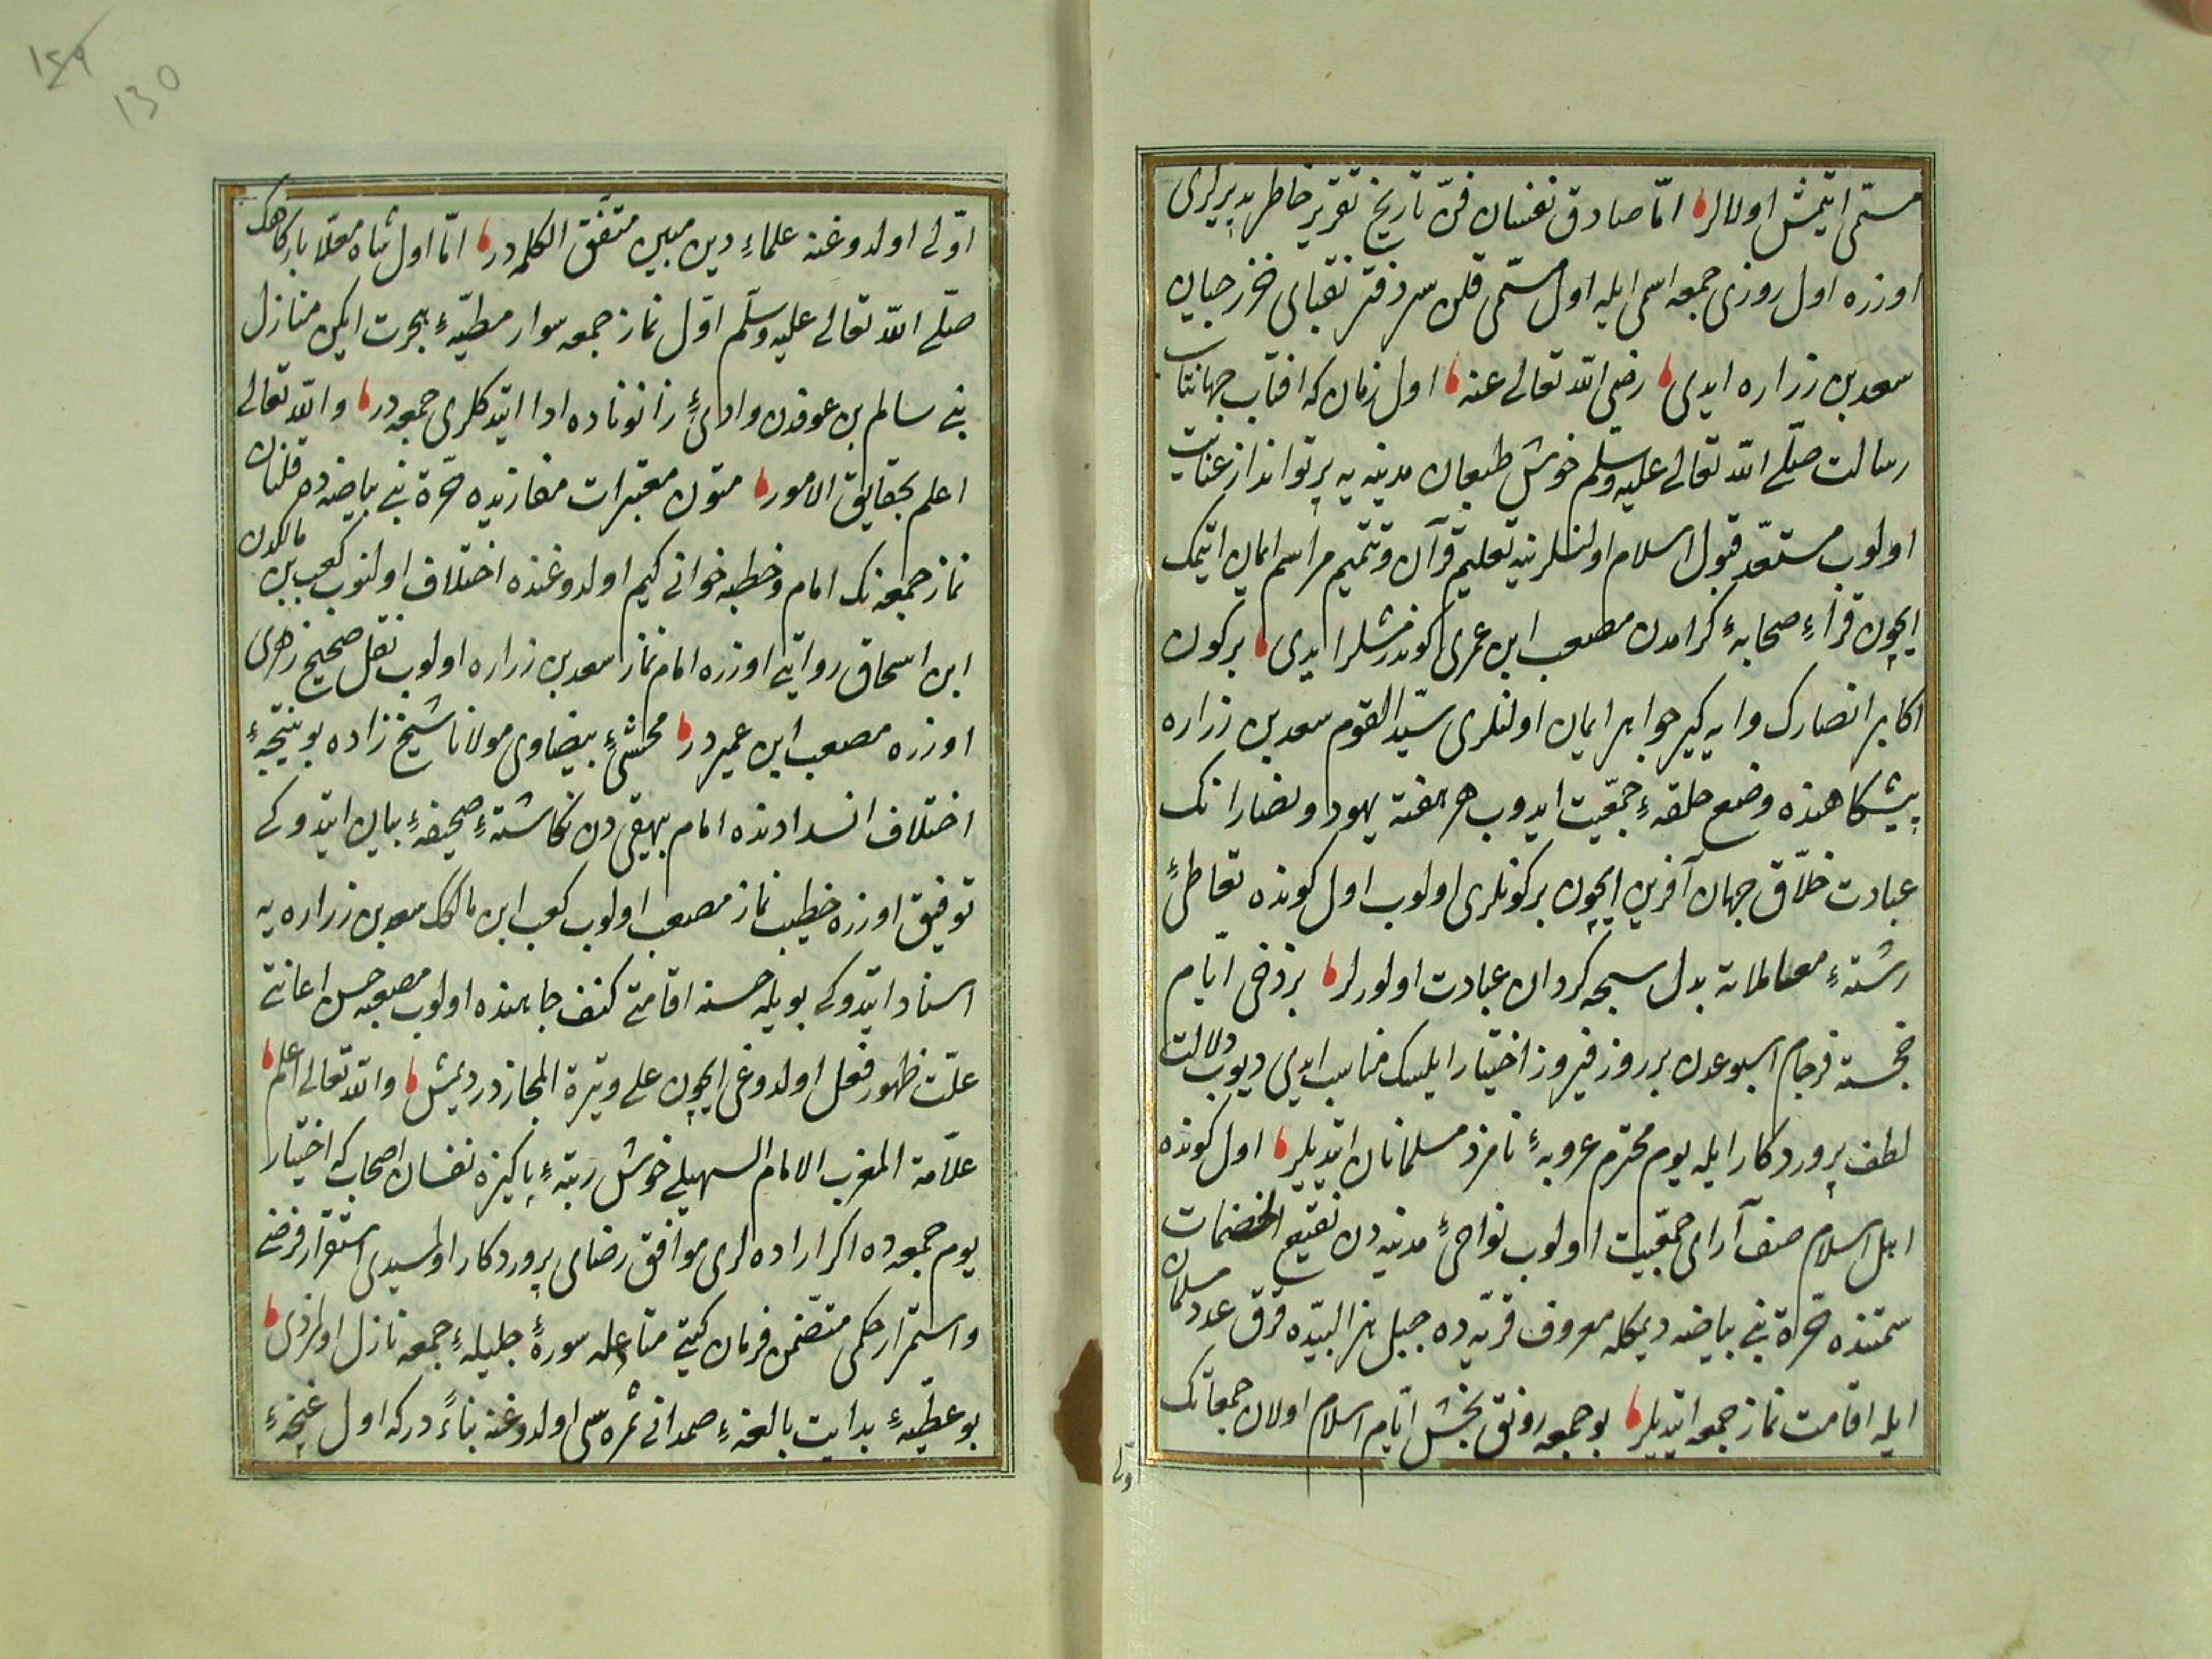 مسمّى ايتمش اولالر اما صادق نفسان فنّ تاريخ تقرير خاطر پذيرلرى
اوزره اول روزى جمعه اسمى ايله اول مسمّى قلن سر دفتر نقباى خزرجيان
سعد بن زراره ايدى رضى الله تعالى عنه اول زمان كه افتاب جهانتاب
رسالت صلّى الله تعالى عليه وسلّم خوش طبعان مدينه يه پرتو انداز عنايت
اولوب مستعدّ قبول اسلام اولنلرينه تعليم قرآن وتتميم مراسم ايمان ايتمك
ايچون قرّاءِ صحابهٔ كرامدن مصعب ابن عمرى كوندرمشلر ايدى بر كون
اكابر انصارك وايه كير جواهر ايمان اولنلرى سيّد القوم سعد بن زراره
پيشكاهنده وضع حلقهٔ جمعيّت ايدوب هر هفته يهود ونصارانك
عبادت خلّاق جهان آفرين ايچون بر كونلرى اولوب اول كونده تعاطىٔ
رشتهٔ معاملاته بدل سبحه كردان عبادت اولورلر بز دخى ايّام
خجسته فرجام اسبوعدن بر روز فيروز اختيار ايلمك مناسب ايدى ديوب دلالت
لطف پروردكار ايله يوم محترم عروبهٔ نامزد مسلمانان ايتديلر اول كونده
اهل اسلام صف آراى جمعيّت اولوب نواحىٔ مدينه دن نقيع الخضمات
سمتنده حرّة بنى بياضه ديمكله معروف قريه ده جبل هزالبيده قرق عدد مسلمان
ايله اقامت نماز جمعه ايتديلر بو جمعه رونق بخش ايّام اسلام اولان جمعاتك
اوّلى
اوّلى اولدوغنه علماءِ دين مبين متّفق الكلمه در امّا اول شاه معلّا باركاهك
صلّى الله تعالى عليه وسلّم اوّل نماز جمعه سوار مطيّهٔ هجرت ايكن منازل
بنى سالم بن عوفدن وادىٔ رانوناده ادا ايتدكلرى جمعه در والله تعالى
اعلم بحقايق الامور متون معتبرات مغازيده حرّة بنى بياضه ده قلنان
نماز جمعه نك امام وخطبه خوانى كيم اولدوغنده اختلاف اولنوب كعب بن مالكدن
ابن اسحاق روايتى اوزره امام نماز سعد بن زراره اولوب نقل صحيح زهرى
اوزره مصعب ابن عمير در محشّىٔ بيضاوى مولانا شيخ زاده بو نتيجهٔ
اختلاف انسدادنده امام بيهقى دن نكاشتهٔ صحيفهٔ بيان ايتدوكى
توفيق اوزره خطيب نماز مصعب اولوب كعب ابن مالك سعد بن زراره يه
اسناد ايتدوكى بويله حسنه اقامتى كنف جاهنده اولوب مصعبه حسن اعانتى
علّت ظهور فعل اولدوغى ايچون على وتيرة المجاز در ديمش والله تعالى اعلم
علّامة المغرب الامام السهيلى خوش رتبهٔ پاكيزه نفسان اصحاب كه اختيار
يوم جمعه ده اكر اراده لرى موافق رضاى پروردكار اولمسيدى استقرار فرضى
واستمرار حكمى متضمّن فرمان كيتى متاعله سورهٔ جليلهٔ جمعه نازل اولمزدى
بو عطيّهٔ هدايت بالغهٔ صمدانى ثمره سى اولدوغنه بناءً دركه اول غنچهٔ